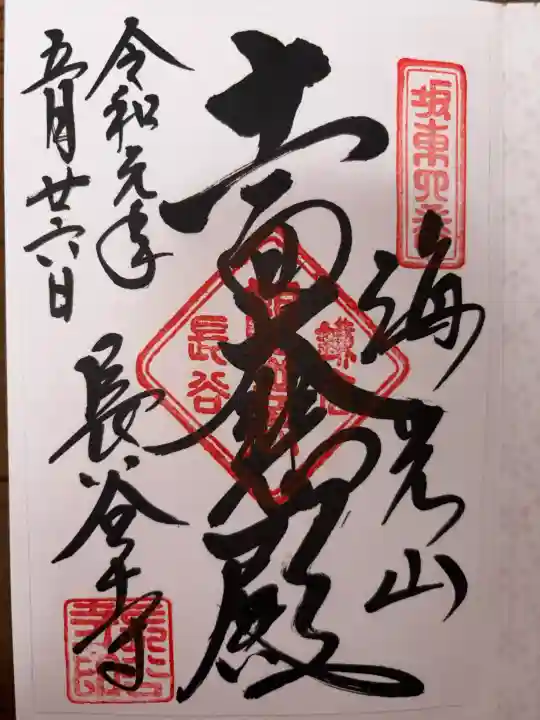 坂東四番
海光山
十一面大悲殿
鎌倉
長谷
令和元年
五月廿六日
長谷寺